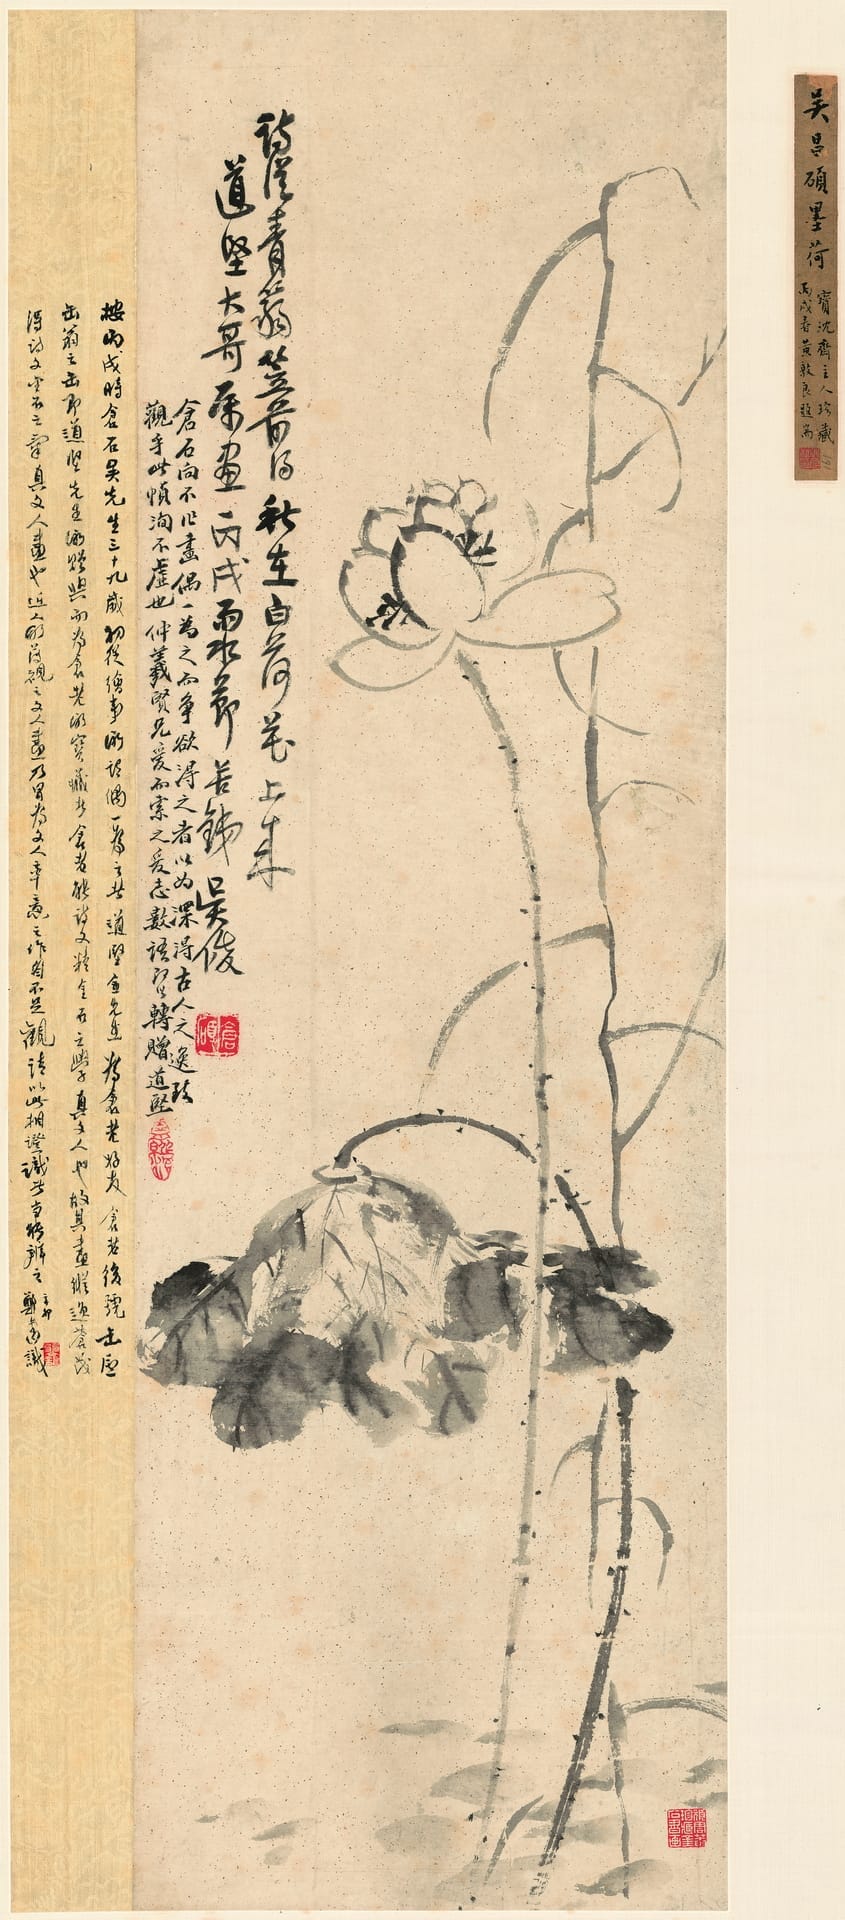 吳昌碩墨荷
寶沈齋主人珍藏
丙戌春黄敦良題耑
詩從青篛笠前得秋在白荷花上来
道堅大哥屬畫丙戌雨水節苦鐵吳俊
倉石向不作畫偶一為之而爭欲得之者以為深得古人之逸致
觀乎此幀洵不虛也仲羲賢兄愛而索之爰志數語即以轉贈道堅
倉碩
按丙戌時倉石吴先生三十九歲初從繪事所謂偶一為之者道堅金先生為倉老好友倉老後號缶廬
缶翁之缶即道堅先生所贈與而為倉老所寶藏者倉老能詩文精金石之學真文人也故其畫縱逸蒼茂
得詩文金石之氣真文人畫也近人所薄視之文人畫乃冒為文人率意之作自不足觀請以此相證識者當能辨之 辛卯鄭識